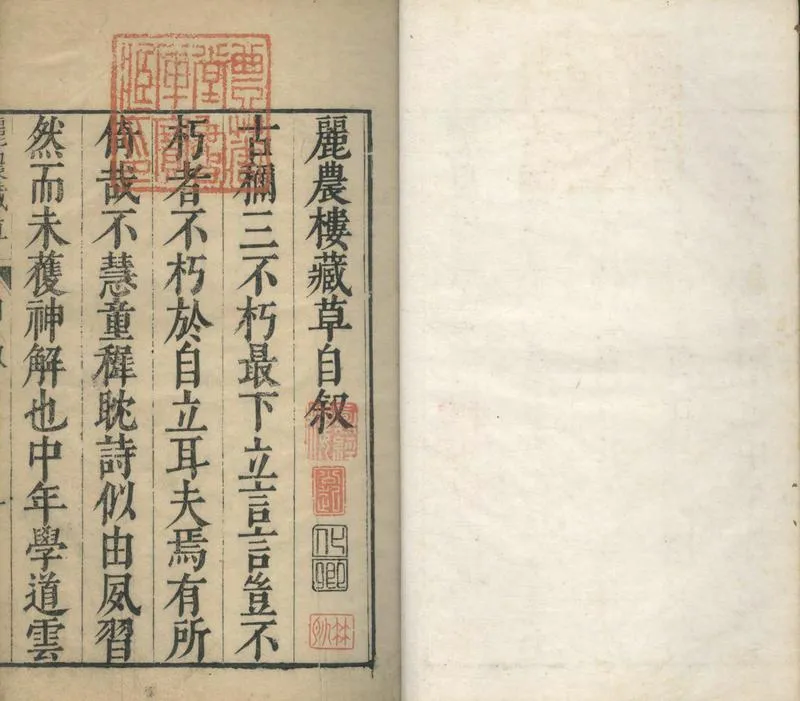 麗農樓藏草自叙
古稱三不朽最下立言言豈不
朽者不朽於自立耳夫焉有所
倚哉不慧童穉耽詩似由夙習
然而未蒦神解也中年學道雲